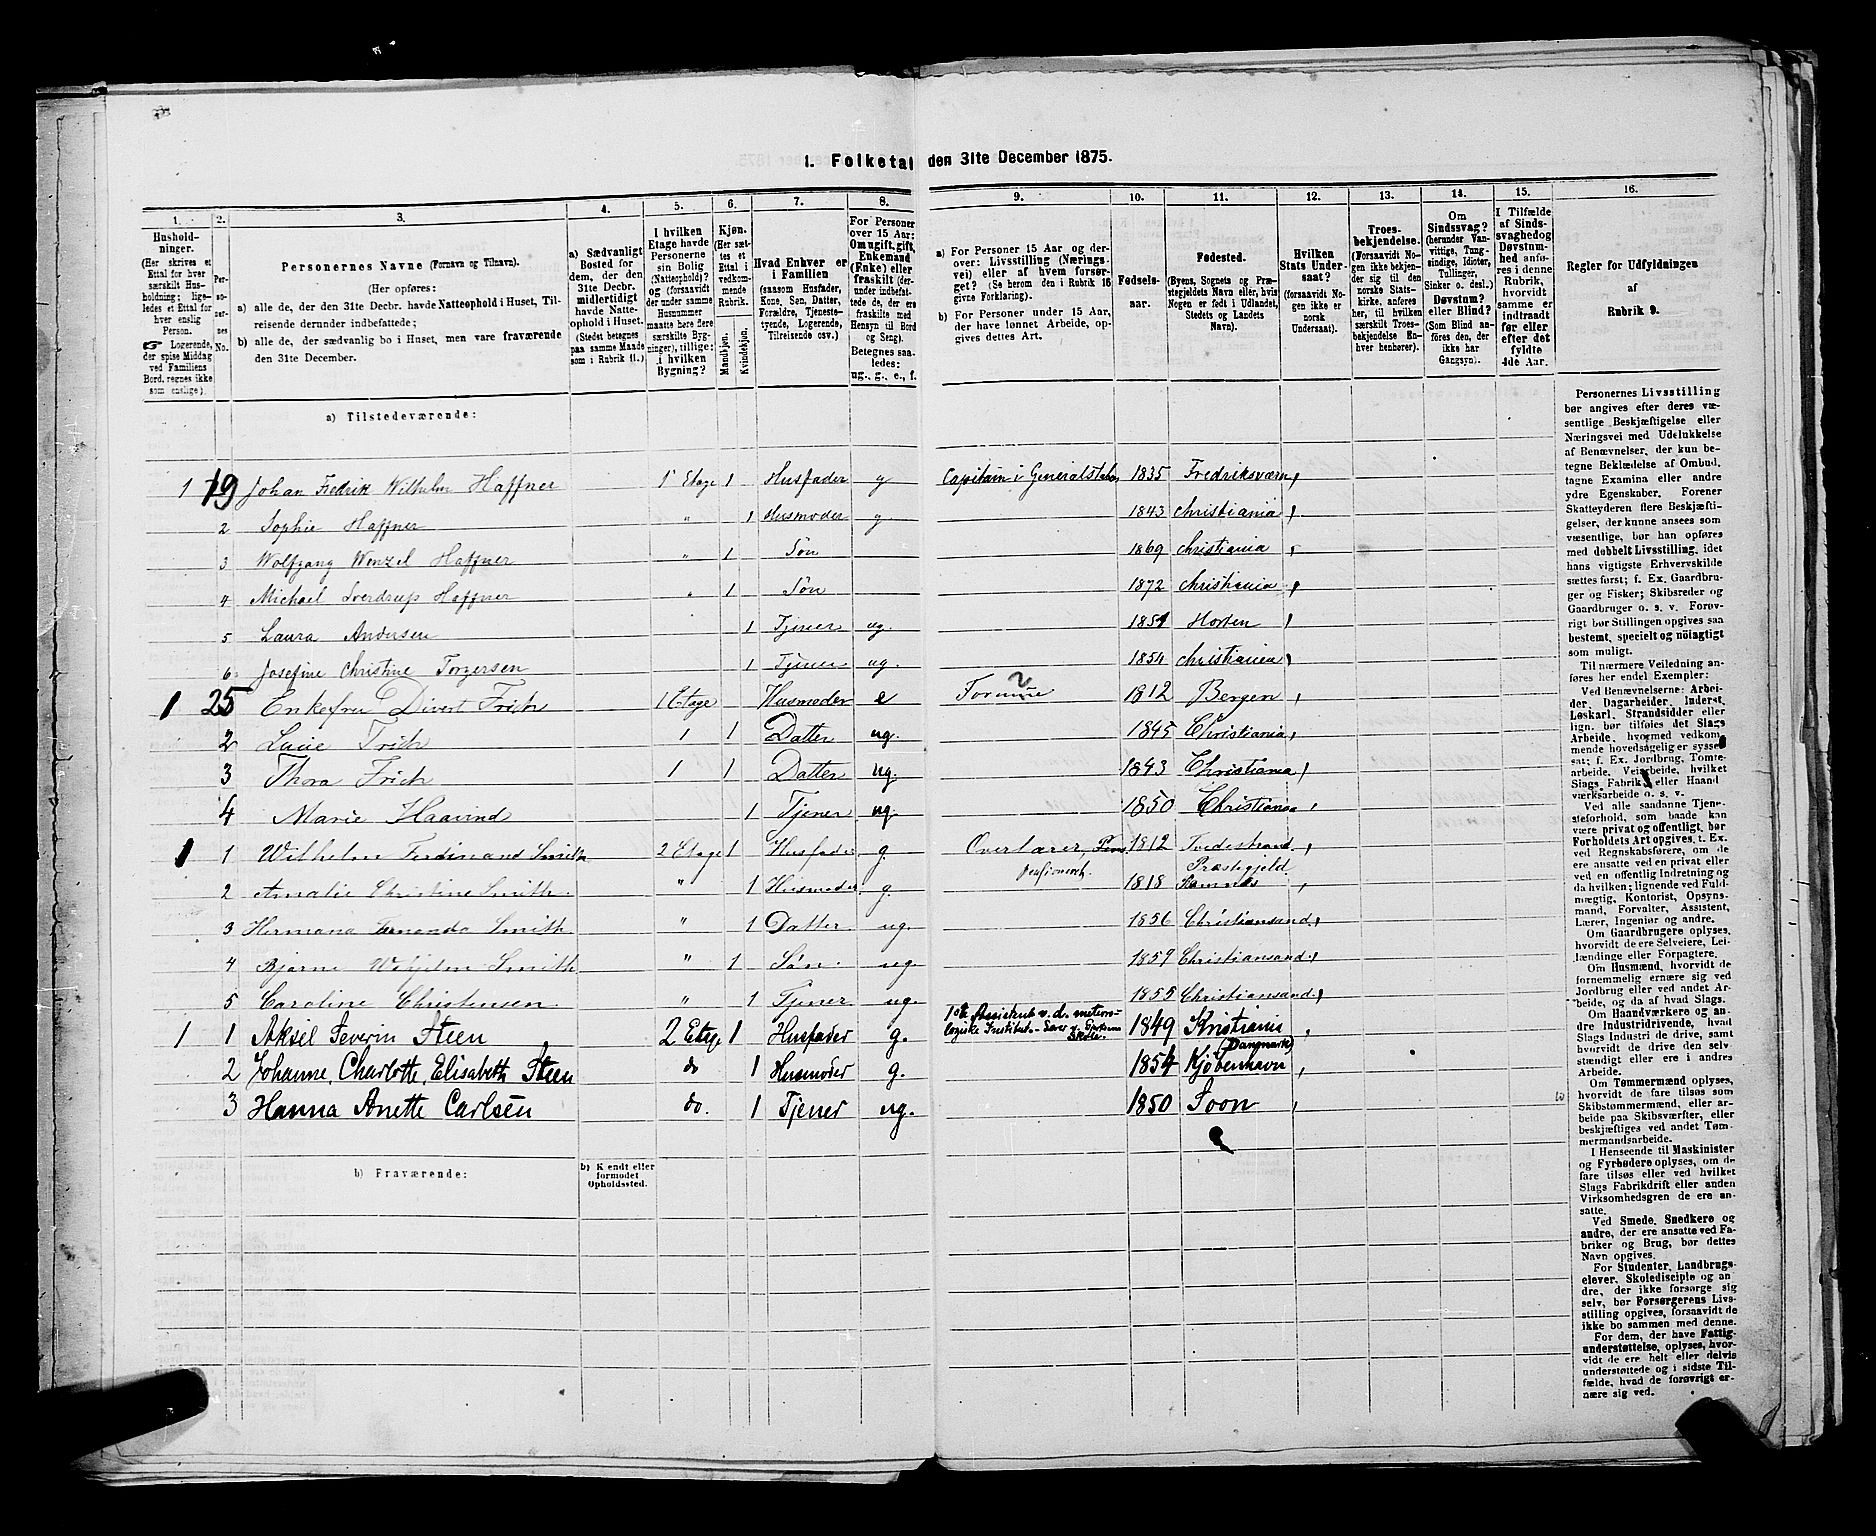 1. Folketal den 31te December 1875.
1. 2. 3. 4. 5. 6. 7. 8. 9. 10. 11. 12. 13. 14. 15. 16.
Hushold-
ninger.
(Her skrives et
Ettal for hver
særskilt Hus-
holdning; lige-
ledes et Ettal for
hver enslig
Person.
☞ Logerende,
der spise Middag
ved Familiens
Bord, regnes ikke
som enslige).
Per-
so-
ner-
nes
No.
Personernes Navne (Fornavn og Tilnavn).
(Her opføres:
a) alle de, der den 31te Decbr. havde Natteophold i Huset, Til-
reisende derunder indbefattede;
b) alle de, der sædvanlig bo i Huset, men vare fraværende
den 31te December.
a) Sædvanligt
Bosted for
dem, der den
31te Decbr.
midlertidigt
havde Natte-
ophold i Huset.
(Stedet betegnes
paa samme Maade
som i Rubrik 11.)
I hvilken
Etage havde
Personerne
sin Bolig
(Natteophold)?
(forsaavidt
der under samme
Husnummer
maatte høre flere
særskilte Byg-
ninger), tillige:
i hvilken
Bygning?
Kjøn.
(Her sæt-
tes et
Ettal i
vedkom-
mende
Rubrik.
Mandkjøn.
Kvindekjøn.
Hvad Enhver er
i Familien
(saasom Husfader,
Kone, Søn, Datter,
Forældre, Tjeneste-
tyende, Logerende,
Tilreisende osv.)
For Personer
over 15 Aar:
Om ugift, gift,
Enkemand
(Enke) eller
fraskilt (der-
under indbefat-
tede de, der ere
fraskilte med
Hensyn til Bord
og Seng).
Betegnes saa-
ledes:
ug., g., e., f.
a) For Personer 15 Aar og der-
over: Livsstilling (Nærings-
vei) eller af hvem forsør-
get? (Se herom den i Rubrik 16
givne Forklaring).
b) For Personer under 15 Aar,
der have lønnet Arbeide, op-
gives dettes Art.
Fødsels-
aar.
Fødested.
(Byens, Sognets og Præ-
stegjeldets Navn eller, hvis
Nogen er født i Udlandet,
Stedets og Landets
Navn).
Hvilken
Stats Under-
saat?
(forsaavidt No-
gen ikke er
norsk
Undersaat).
Troes-
bekjendelse.
(Forsaavidt No-
gen ikke bekjen-
der sig til den
norske Stats-
kirke, anføres
her, til hvilken
særskilt Troes-
bekjendelse En-
hver henhører).
Om
Sindssvag?
(herunder Van-
vittige, Tung-
sindige, Idioter,
Tullinger,
Sinker o. desl.)
Døvstum?
eller Blind?
(Som Blind an-
føres den, der
ikke har
Gangsyn).
I Tilfælde
af Sinds-
svaghed og
Døvstum-
hed anfø-
res i denne
Rubrik,
hvorvidt
samme er
indtraadt
før eller
efter det
fyldte
4de Aar.
Regler for Udfyldningen
af
Rubrik 9.
a) Tilstedeværende:
1 19 Johan Fredrik Wilhelm Haffner 1 Etage 1 Husfader g Capitain i Generalstaben 1835 Fredriksværn
2 Sophie Haffner " 1 Husmoder g. 1843 Christiania
3 Wolfgang Wenzel Haffner " 1 Søn 1869 Christiania
4 Michael Sverdrup Haffner " 1 Søn 1872 Christiania
5 Laura Andersen 1 Tjener ug. Horten
6. Josefine Christine Torgersen 1 Tjener ug. 1854 Christiania
1 25 Enkefru Divert Frich 1 Etage Husmoder e Formue 1812 Bergen
2 Lucie Frich 1 1 Datter ug. 1845 Christiania
3 Thora Frich 1 1 Datter ug. 1843 Christiania
4 Marie Haavind 1 Tjener ug. 1850 Christiana
1 1 Wilhelm Ferdinand Smith 2 Etage 1 Husfader g. Overlærer, Pens. 1812 Tvedestrand
pensioneret. Præstegjeld
2 Amalie Christine Smith " 1 Husmoder g. 1818
3 Hermana Fernanda Smith " 1 Datter ug. 1856 Christiansand
4 Bjarne Wilhelm Smith " 1 Søn ug. 1859 Christiansand
5 Caroline Christensen " 1 Tjener ug. 1855 Christiansand
1 1 Aksel Severin Steen 2 Etage 1 Husfader g. 1ste Assistent v. d. meteoro-
logiske Institut. - Lærer v. Skole. 1849 Kristiania
(Danmark)
2 Johanne, Charlotte, Elisabeth Steen do 1 Husmoder g. 1854 Kjøbenhavn
3 Hanna Anette Carlsen do. 1 Tjener ug. 1850 Soon
b) Fraværende:
b) Kjendt eller
formodet
Opholdssted.
Personernes Livsstilling
bør angives efter deres væ-
sentlige Beskjæftigelse eller
Næringsvei med Udelukkelse
af Benævnelser, der kun be-
tegne Beklædelse af Ombud,
tagne Examina eller andre
ydre Egenskaber. Forener
Skatteyderen flere Beskjæfti-
gelser, der kunne ansees som
væsentlige, bør han opføres
med dobbelt Livsstilling, idet
hans vigtigste Erhvervskilde
sættes først; f. Ex. Gaardbru-
ger og Fisker; Skibsreder og
Gaardbruger o. s. v. Forøv-
rigt bør Stillingen opgives saa
bestemt, specielt og nöiagtigt
som muligt.
Til nærmere Veiledning an-
føres her endel Exempler:
Ved Benævnelserne: Arbei-
der, Dagarbeider, Inderst,
Løskarl, Strandsidder eller
lign. bør tilføies det Slags
Arbeide, hvormed vedkom-
mende hovedsagelig er syssel-
sat; f. Ex. Jordbrug, Tomte-
arbeide, Veiarbeide, hvilket
Slags Fabrik- eller Haand-
værksarbeide o. s. v.
Ved alle saadanne Tjene-
steforhold, som baade kan
være privat og offentligt, bør
Forholdets Art opgives, t. Ex.
ved Regnskabsførere, om de
ere ansatte ved en privat eller
ved en offentlig Indretning og
da hvilken; lignende ved Fuld-
mægtig, Kontorist, Opsyns-
mand, Forvalter, Assistent,
Lærer, Ingeniør og andre.
Om Gaardbrugere oplyses,
hvorvidt de ere Selveiere, Lei-
lændinge eller Forpagtere.
Om Husmænd, hvorvidt de
fornemmelig ernære sig ved
Jordbrug eller ved andet Ar-
beide, og da af hvad Slags.
Om Haandværkere og an-
dre Industridrivende, hvad
Slags Industri de drive, samt
hvorvidt de drive den selv-
stændigt eller ere i andres
Arbeide.
Om Tømmermænd oplyses,
hvorvidt de fare tilsøs som
Skibstømmermænd, eller ar-
beide paa Skibsværfter, eller
beskjæftiges ved andet Tøm-
mermandsarbeide.
I Henseende til Maskinister
og Fyrbødere oplyses, om de
fare tilsøs eller ved hvilket
Slags Fabrikdrift eller anden
Virksomhedsgren de ere an-
satte.
Ved Smede, Snedkere og
andre, der ere ansatte ved Fa-
briker og Brug, bør dettes
Navn opgives.
For Studenter, Landbrugs-
elever, Skoledisciple og an-
dre, der ikke forsørge sig
selv, bør Forsørgerens Livs-
stilling opgives, forsaavidt de
ikke bo sammen med denne.
For dem, der have Fattig-
understøttelse, oplyses, hvor-
vidt de ere helt eller delvis
understøttede og i sidste Til-
fælde, hvad de forøvrigt er-
nære sig ved.